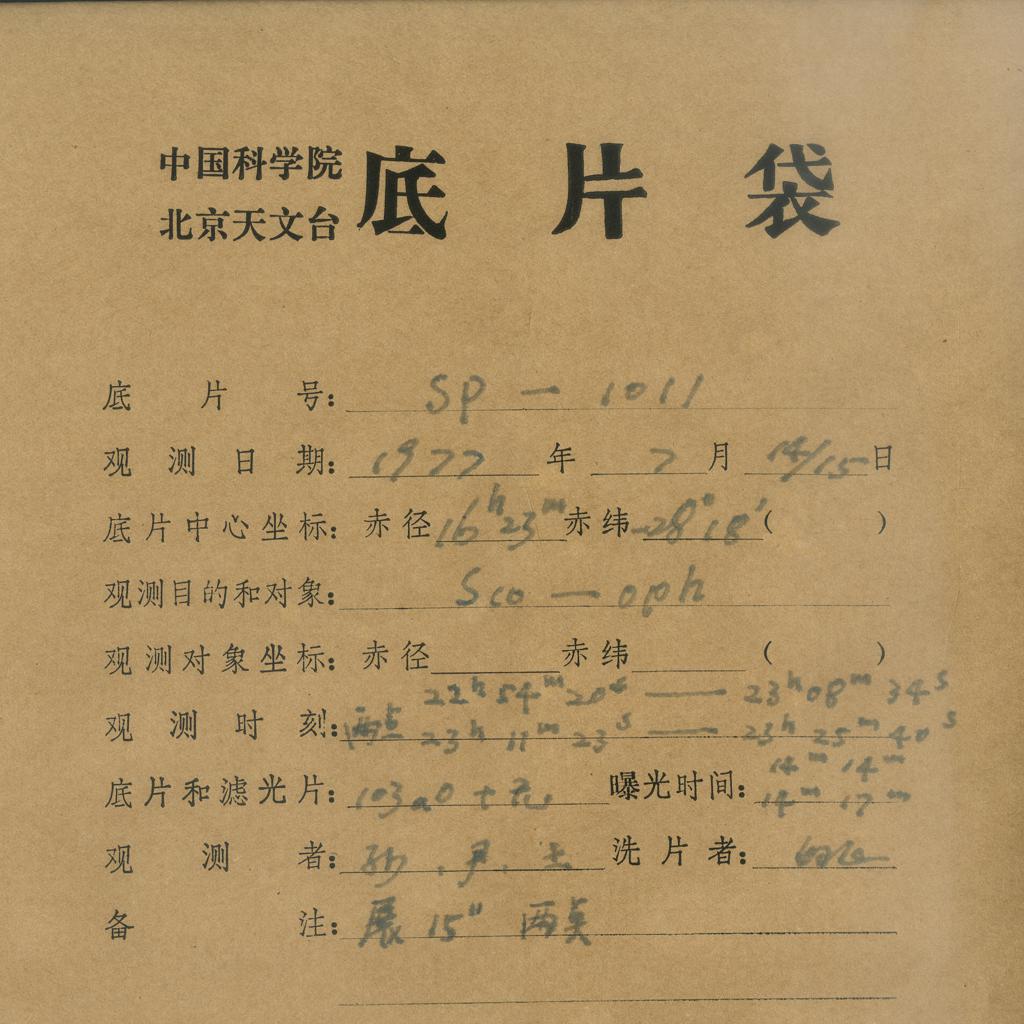 中国科学院
北京天文台
底片袋
底片号: SP — 1011
观测日期: 1977年7月14/15日
底片中心坐标: 赤径16ʰ23ᵐ赤纬-28°18′( )
观测目的和对象: Sco — oph
观测对象坐标: 赤径 赤纬 ( )
22ʰ54ᵐ20ˢ — 23ʰ08ᵐ34ˢ
观测时刻: 两点 23ʰ11ᵐ23ˢ — 23ʰ25ᵐ40ˢ
14ᵐ 14ᵐ
底片和滤光片: 103aO + 无 曝光时间: 14ᵐ 17ᵐ
观测者: 洗片者:
备注: 展15″ 两点